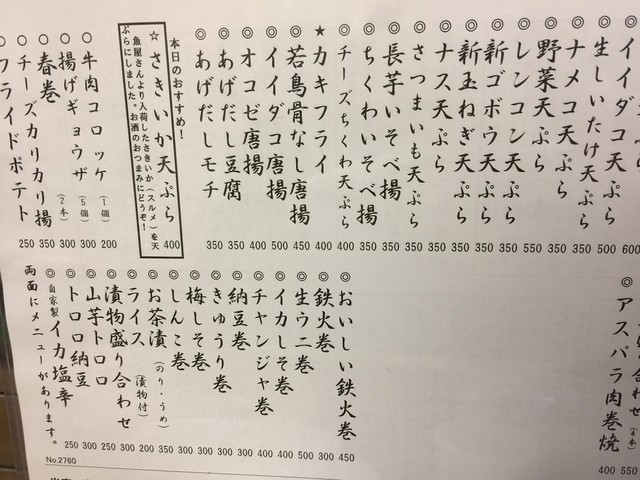 イイダコ天ぷら 600
◎生しいたけ天ぷら 500
◎ナメコ天ぷら 350
◎野菜天ぷら 550
◎レンコン天ぷら 350
◎新ゴボウ天ぷら 350
◎新玉ねぎ天ぷら 350
◎ナス天ぷら 350
◎さつまいも天ぷら 350
◎長芋いそべ揚 350
◎ちくわいそべ揚 350
◎チーズちくわ天ぷら 400
★カキフライ 400
◎若鳥骨なし唐揚 450
◎イイダコ唐揚 500
◎オコゼ唐揚 400
◎あげだし豆腐 350
◎あげだしモチ 350
本日のおすすめ!
☆さきいか天ぷら 400
魚屋さんより入荷したさきいか(スルメ)を天
ぷらにしました。お酒のおつまみにどうぞ!
○牛肉コロッケ(1個) 200
○揚げギョウザ(5個) 300
○春巻(2本) 300
○チーズカリカリ揚 350
○フライドポテト 250
り合わせ(4本) 550
◎アスパラ肉巻焼 400
◎おいしい鉄火巻 450
◎鉄火巻 300
◎生ウニ巻 500
◎イカしそ巻 400
◎チャンジャ巻 400
◎納豆巻 300
◎きゅうり巻 300
◎梅しそ巻 300
◎しんこ巻 300
◎お茶漬(のり・うめ) 350
◎ライス(漬物付) 200
◎漬物盛り合わせ 300
◎山芋トロロ 250
◎トロロ納豆 300
◎自家製イカ塩辛 250
両面にメニューがあります。
No.2760